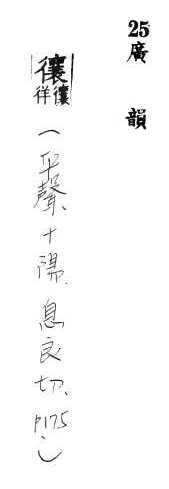 25廣韻
忀忀徉(平聲、十陽、息良切、P175、)